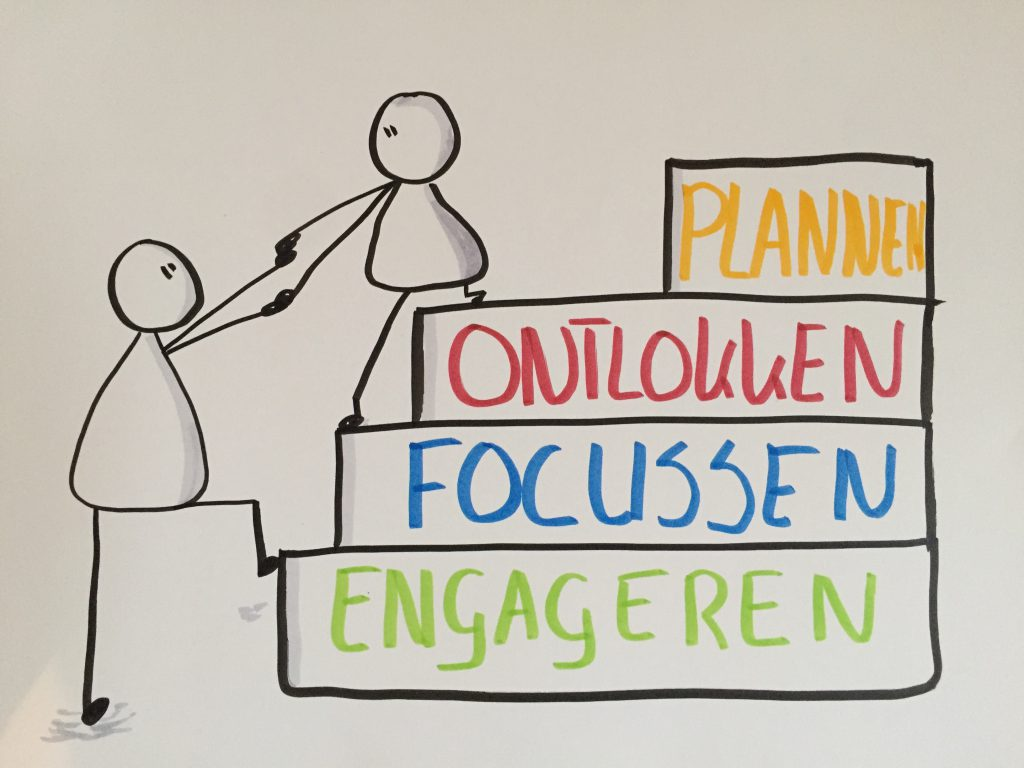 PLANNEN
ONTLOKKEN
FOCUSSEN
ENGAGEREN